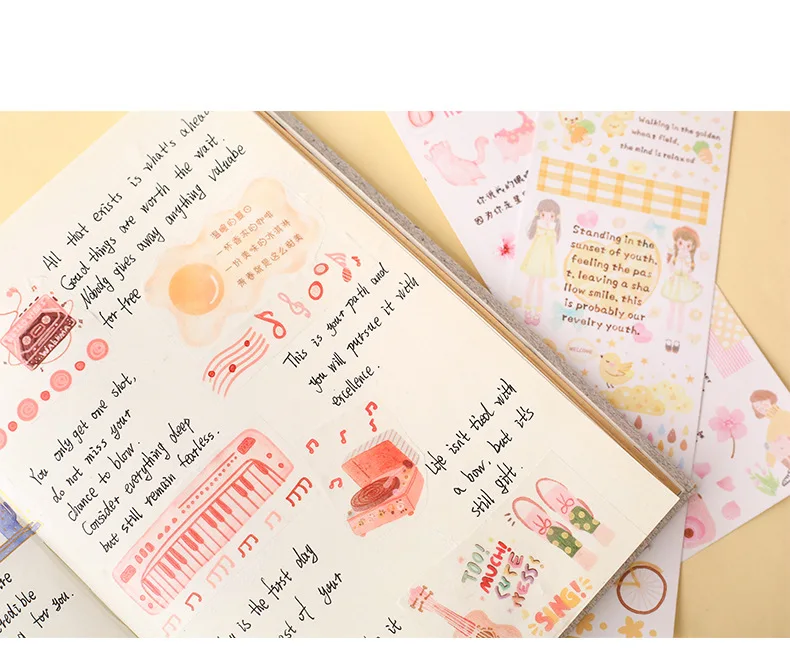 All that exists is what's ahead.
Good things are worth the wait.
Nobody gives away anything valuable
for free
温暖的蛋白
一杯香浓的咖啡
一份美味的冰淇淋
青春就是这么甜美
WALKMAN
This is your path and
you will pursue it with
excellence.
You only get one shot,
do not miss your
chance to blow.
Consider everything deep
but still remain fearless.
Life isn't tied with
a bow, but it's
still gift.
TOO!
MUCH!
CUTE
NESS!
SING!
is the first day
est of your
it
re
redible
for you.
你说我的
因为你是
Walking in the golden
wheat field,
the mind is relaxed
Standing in the
sunset of youth,
feeling the pas
t, leaving a sha
llow smile, this
is probably our
revelry youth.
WELCOME